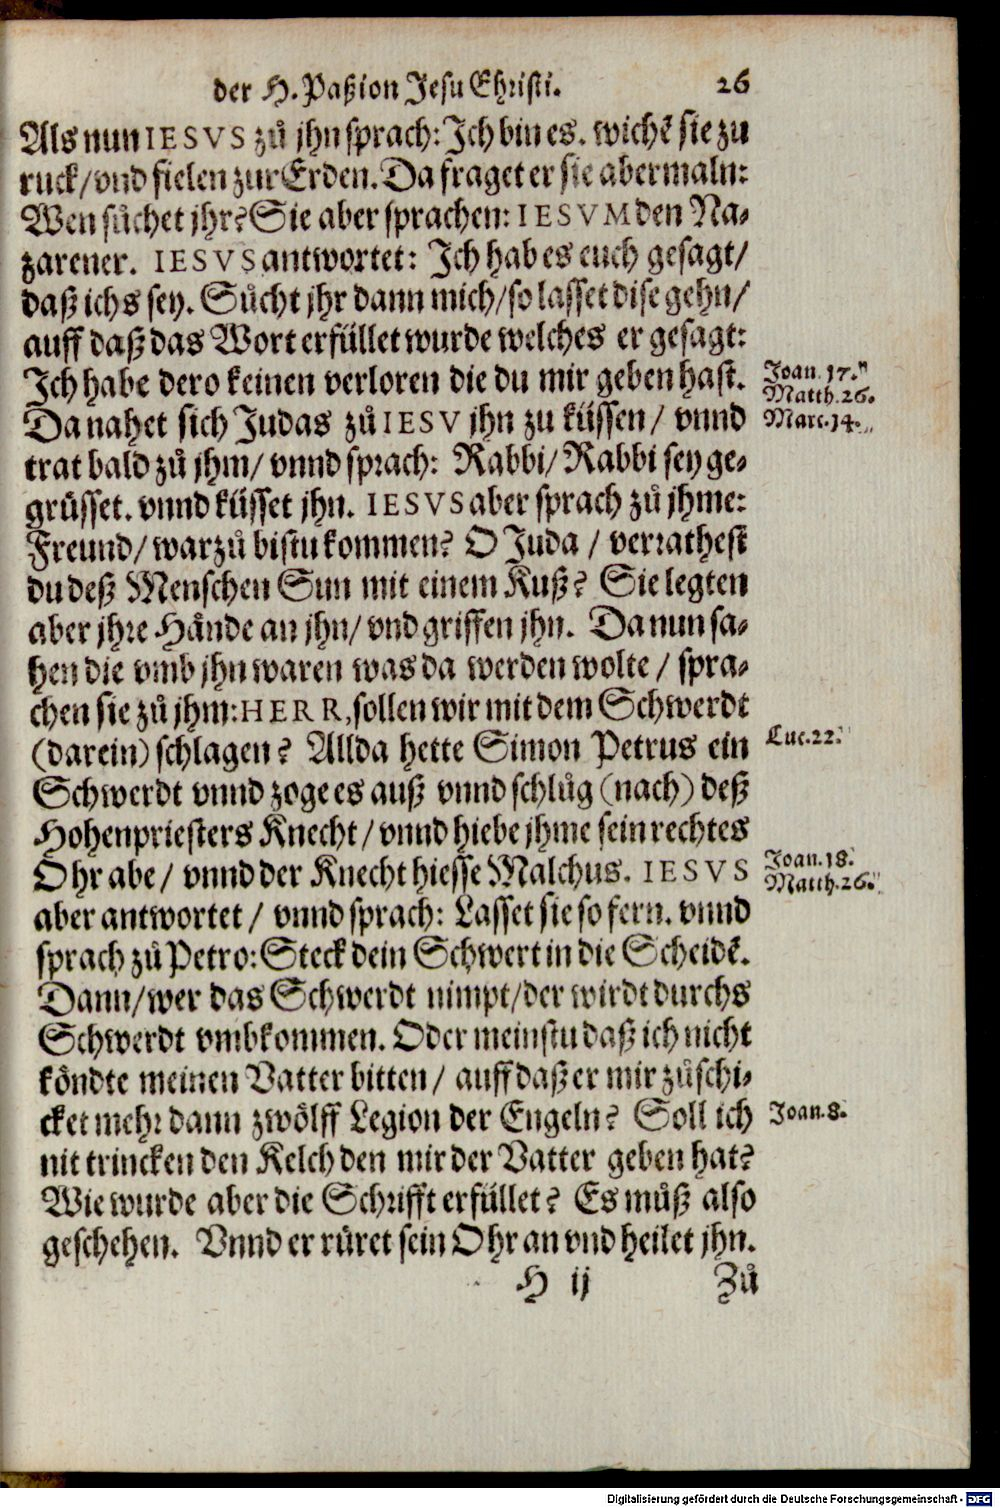 der H. Paßion Jesu Christi. 26
Als nun IESVS zů jhn sprach: Ich bin es. wichẽ sie zu
ruck/ vnd fielen zur Erden. Da fraget er sie abermaln:
Wen sůchet jhr? Sie aber sprachen: IESVM den Na-
zarener. IESVS antwortet: Ich hab es euch gesagt/
daß ichs sey. Sůcht jhr dann mich/ so lasset dise gehn/
auff daß das Wort erfüllet wurde welches er gesagt:
Ich habe dero keinen verloren die du mir geben hast.
Joan. 17.
Matth. 26.
Da nahet sich Judas zů IESV jhn zu küssen/ vnnd
Marc. 14.
trat bald zů jhm/ vnnd sprach: Rabbi/ Rabbi sey ge-
grüsset. vnnd küsset jhn. IESVS aber sprach zů jhme:
Freund/ warzů bistu kommen? O Juda / verrathest
du deß Menschen Sun mit einem Kuß? Sie legten
aber jhre Hånde an jhn/ vnd griffen jhn. Da nun sa-
hen die vmb jhn waren was da werden wolte / spra-
chen sie zů jhm: HERR, sollen wir mit dem Schwerdt
(darein) schlagen? Allda hette Simon Petrus ein
Luc. 22.
Schwerdt vnnd zoge es auß vnnd schlůg (nach) deß
Hohenpriesters Knecht/ vnnd hiebe jhme sein rechtes
Ohr abe/ vnnd der Knecht hiesse Malchus. IESVS
Joan. 18.
Matth. 26.
aber antwortet/ vnnd sprach: Lasset sie so fern. vnnd
sprach zů Petro: Steck dein Schwert in die Scheidẽ.
Dann/ wer das Schwerdt nimpt/ der wirdt durchs
Schwerdt vmbkommen. Oder meinstu daß ich nicht
kôndte meinen Vatter bitten/ auff daß er mir zůschi-
cket mehr dann zwôlff Legion der Engeln? Soll ich
Joan. 8.
nit trincken den Kelch den mir der Vatter geben hat?
Wie wurde aber die Schrifft erfüllet? Es můß also
geschehen. Vnnd er rüret sein Ohr an vnd heilet jhn.
H ij Zů
Digitalisierung gefördert durch die Deutsche Forschungsgemeinschaft - DFG